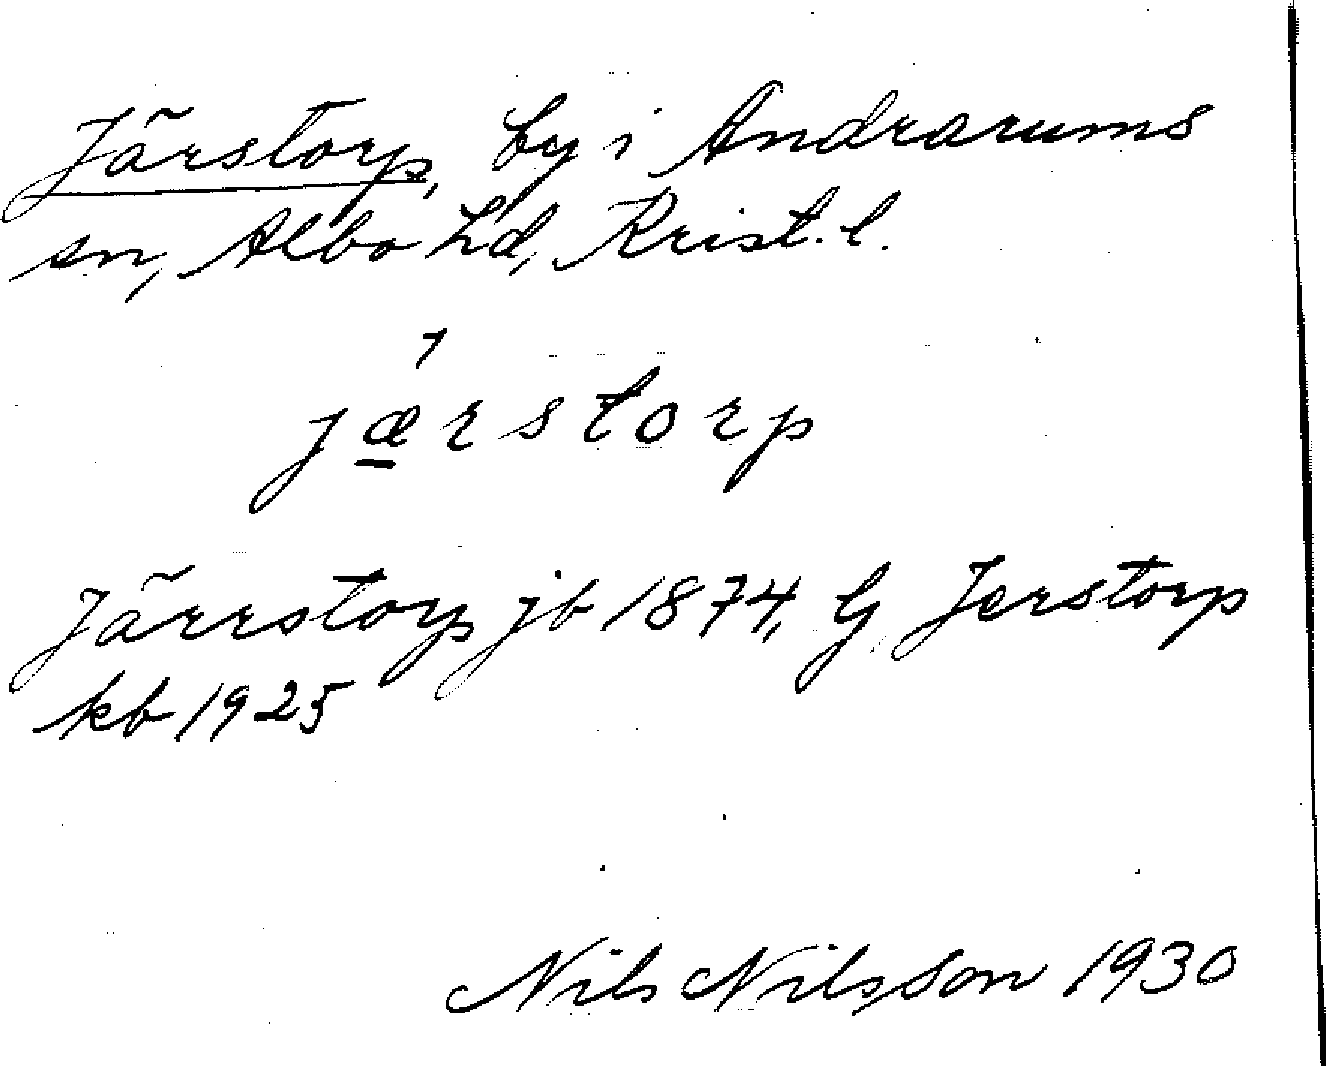 Järstorp, by i Andrarums
sn, Albo hd, Krist. l.
jæ̱rstorp
Järrstorp jb 1874, G, Jerstorp
kb 1925
Nils Nilsson 1930